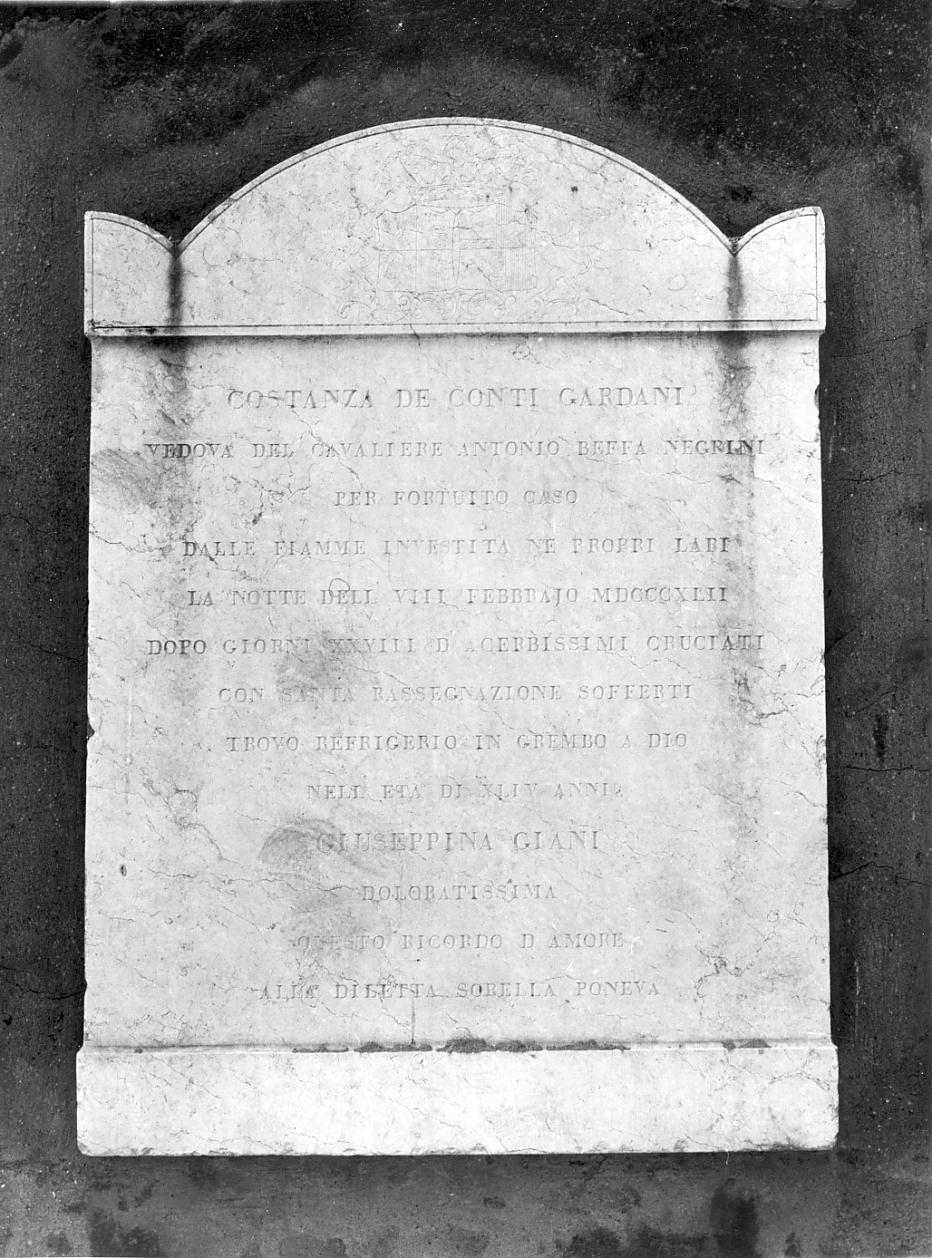 COSTANZA DE CONTI GARDANI
VEDOVA DEL CAVALIERE ANTONIO BEFFA NEGRINI
PER FORTUITO CASO
DALLE FIAMME INVESTITA NE PROPRI LARI
LA NOTTE DELL VIII FEBBRAJO MDCCCXLII
DOPO GIORNI XXVIII D ACERBISSIMI CRUCIATI
CON SANTA RASSEGNAZIONE SOFFERTI
TROVO REFRIGERIO IN GREMBO A DIO
NELL ETA DI XLIV ANNI
GIUSEPPINA GIANI
DOLORATISSIMA
QUESTO RICORDO D AMORE
ALLA DILETTA SORELLA PONEVA